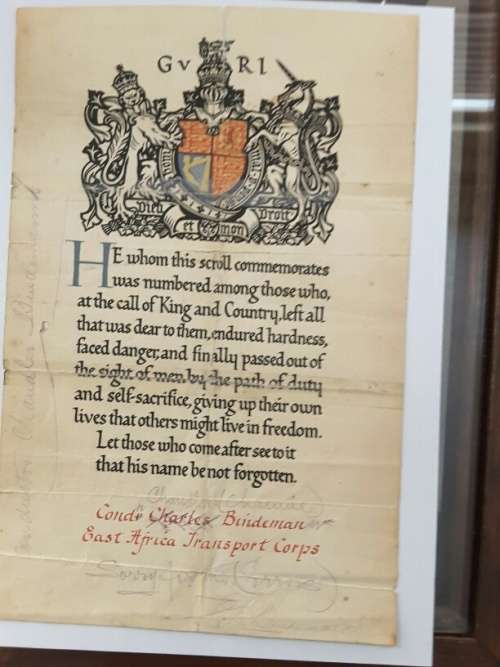 G V R I
Dieu et mon Droit
HE whom this scroll commemorates
was numbered among those who,
at the call of King and Country, left all
that was dear to them, endured hardness,
faced danger, and finally passed out of
the sight of men by the path of duty
and self-sacrifice, giving up their own
lives that others might live in freedom.
Let those who come after see to it
that his name be not forgotten.
Condr Charles Bindeman
East Africa Transport Corps